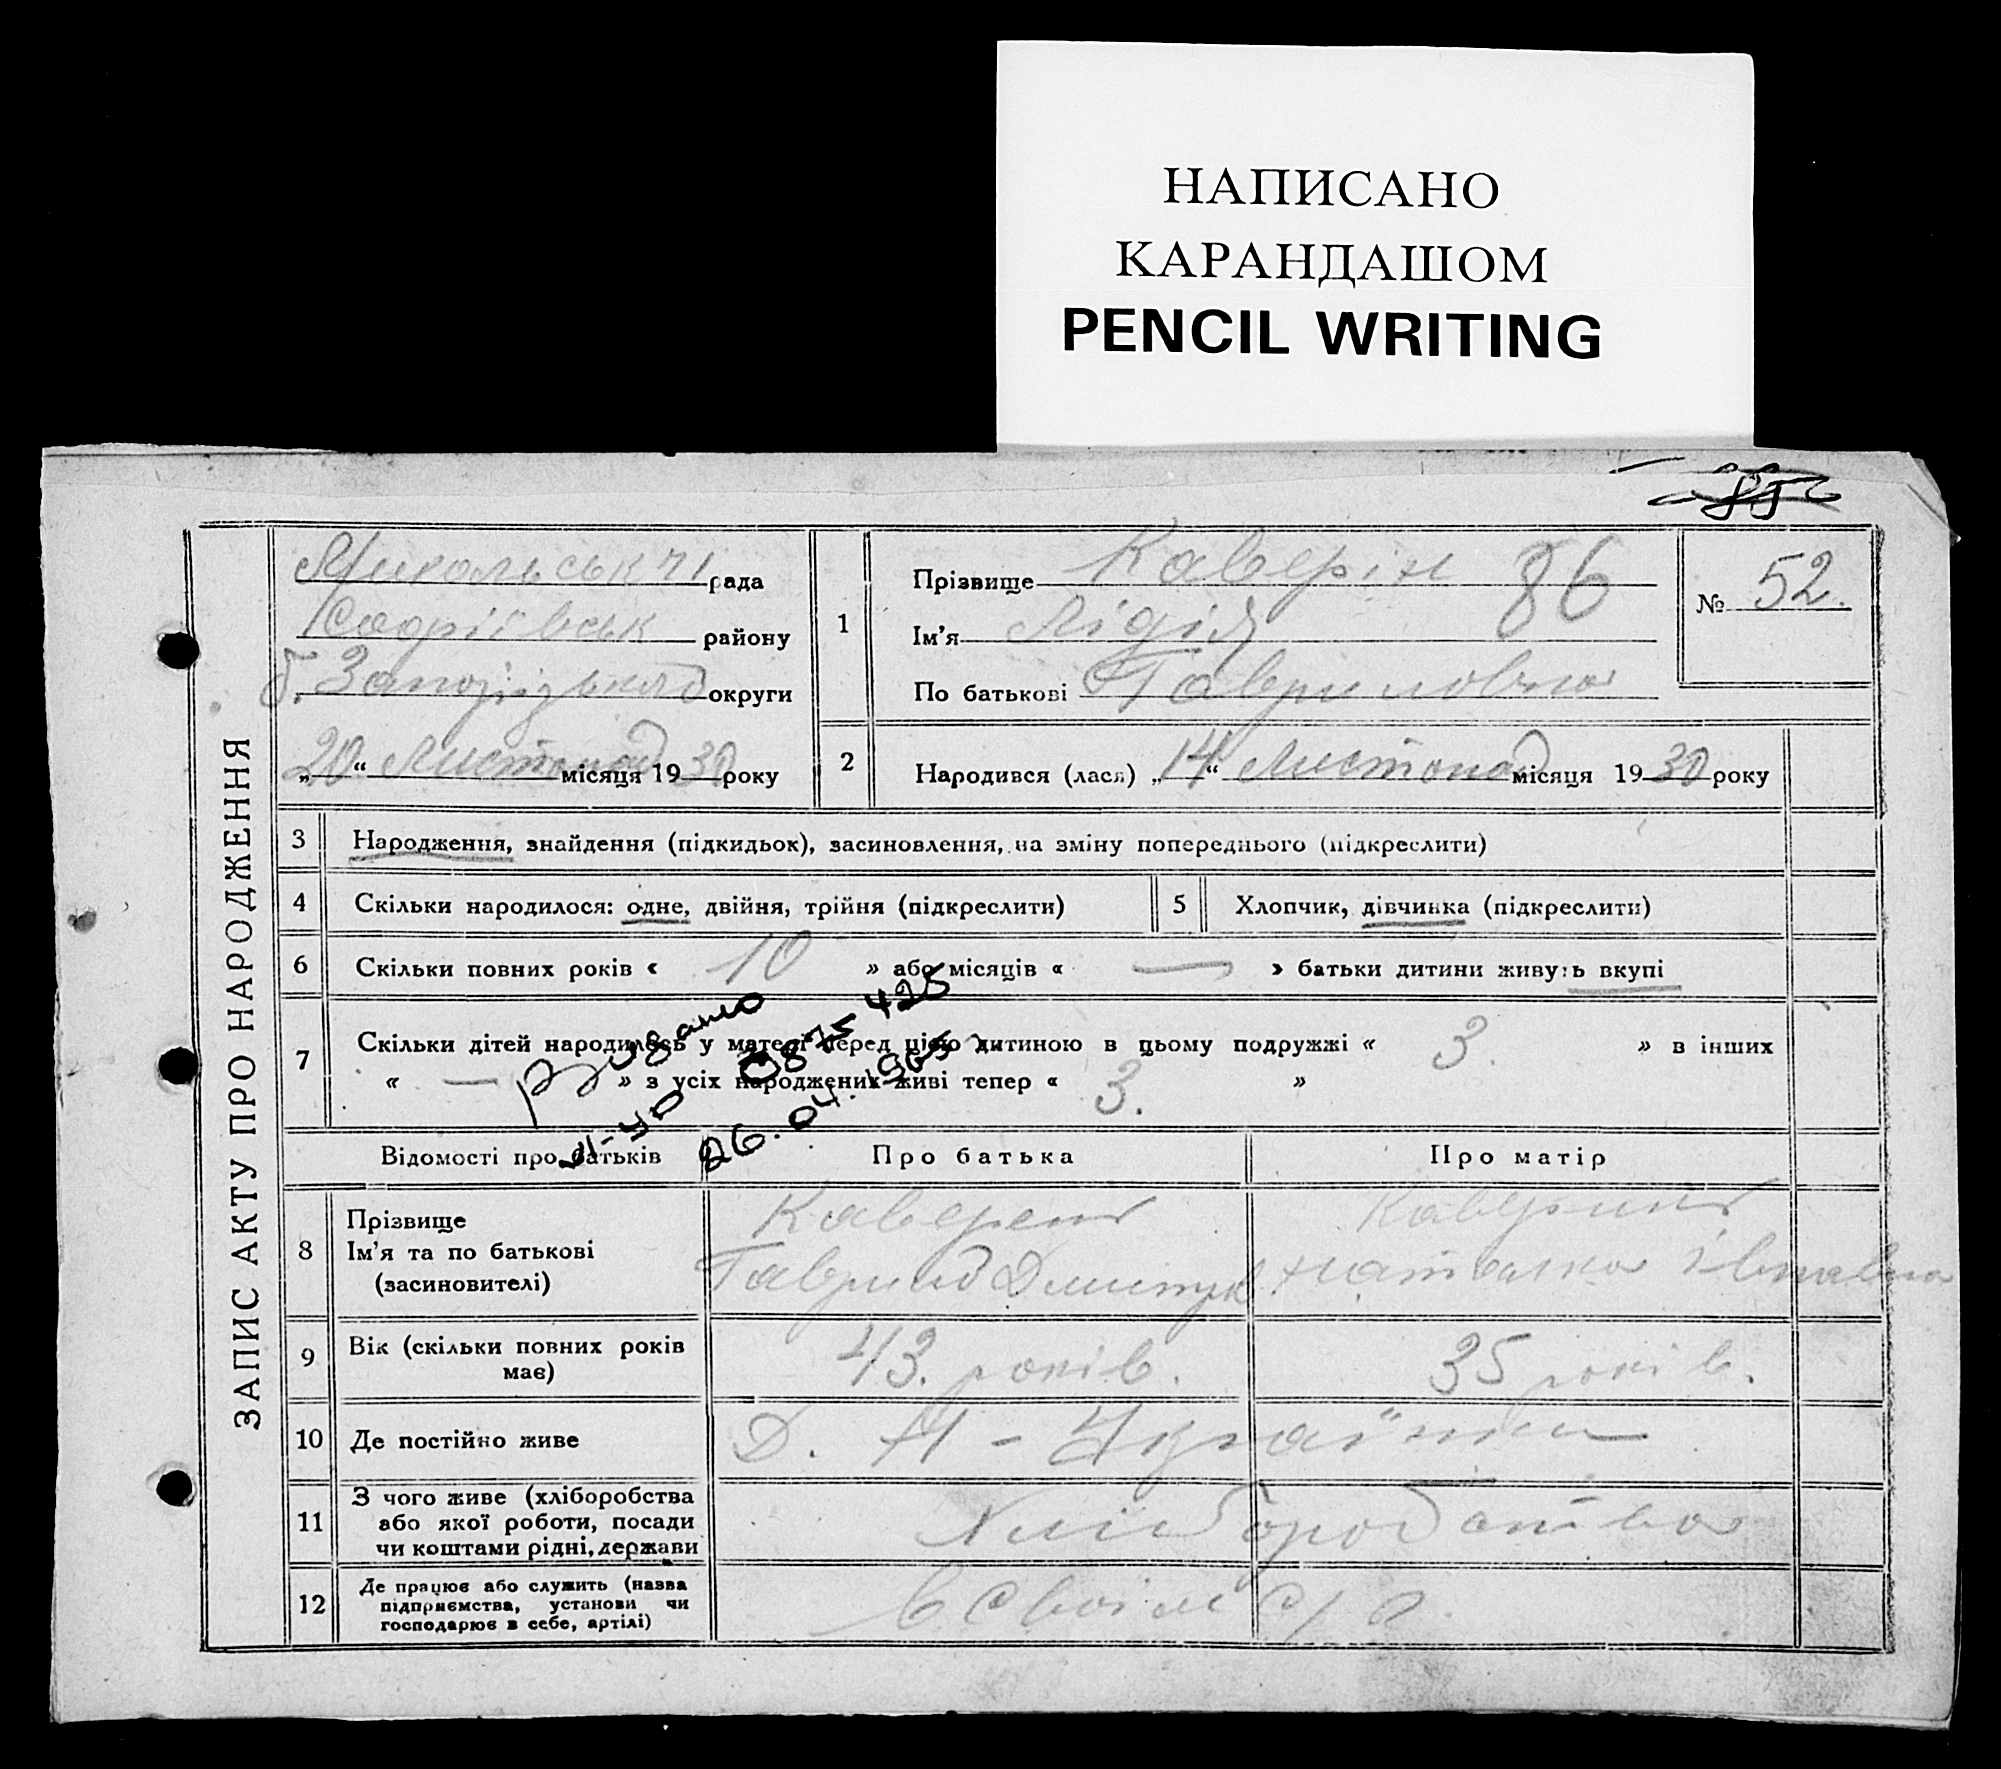 НАПИСАНО
КАРАНДАШОМ
PENCIL WRITING
ЗАПИС АКТУ ПРО НАРОДЖЕННЯ
Микольська рада
Софіївськ району
б. Запорізької округи
„20“ Листопад місяця 1930 року
1 Прізвище Каверін 86
Ім'я Лідія
По батькові Гавриловна
№ 52.
2 Народився (лася) „14“ Листопад місяця 1930 року
3 Народження, знайдення (підкидьок), засиновлення, на зміну попереднього (підкреслити)
4 Скільки народилося: одне, двійня, трійня (підкреслити) 5 Хлопчик, дівчинка (підкреслити)
6 Скільки повних років « 10 » або місяців « — » батьки дитини живуть вкупі
7 Скільки дітей народилось у матері перед цією дитиною в цьому подружжі « 3. » в інших
« — » з усіх народжених живі тепер « 3. »
Видано
425
26.04.1965
Відомості про батьків Про батька Про матір
8 Прізвище
Ім'я та по батькові
(засиновителі)
Каверин
Гаврило Дмитр
Каверина
Наталка
9 Вік (скільки повних років
має)
43. років. 35 років.
10 Де постійно живе Д. Н-Українки
11 З чого живе (хліборобства
або якої роботи, посади
чи коштами рідні, держави
Хліборобства
12 Де працює або служить (назва
підприємства, установи чи
господарює в себе, артілі)
В своїм с/г.